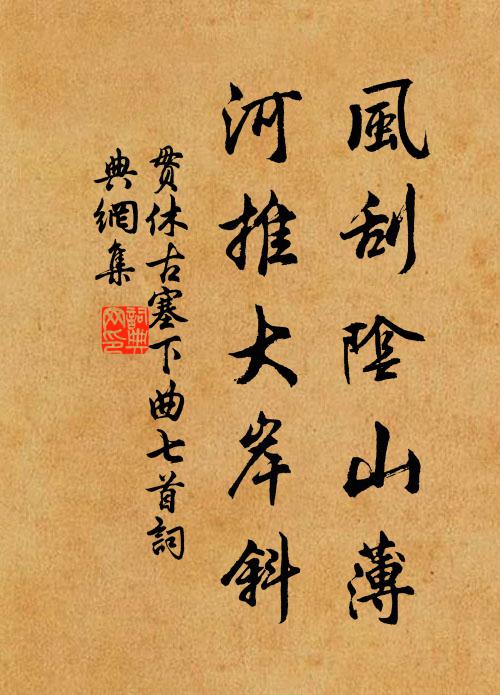 風刮陰山薄
河推大岸斜
贯休古塞下曲七首詞
典網集
詞典
网印